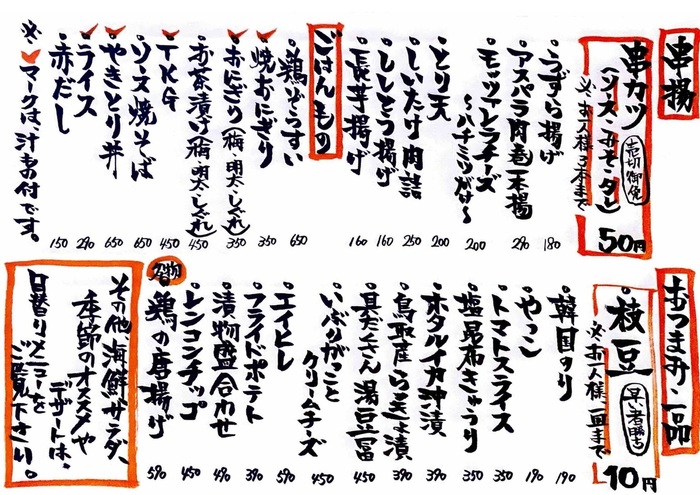 串揚
串カツ 売切御免 50円
(ソース・みそ・タレ)
※お一人様3本まで
うずら揚げ 180
アスパラ肉巻一本揚 290
モッツァレラチーズ 200
〜ハチミツがけ〜
とり天 200
しいたけ肉詰 250
ししとう揚げ 160
長芋揚げ 160
ごはんもの
鶏ぞうすい 650
焼おにぎり 350
おにぎり(梅・明太・しぐれ) 350
お茶漬け(梅・明太・しぐれ) 450
TKG 450
ソース焼そば 650
やきとり丼 650
ライス 290
赤だし 150
※マークは、汁お付です。
おつまみ一品
枝豆 早い者勝ち 10円
※お一人様、一皿まで
韓国のり 190
やっこ 190
トマトスライス 350
塩昆布きゅうり 350
ホタルイカ沖漬 390
鳥取産らっきょ漬 390
具だくさん湯豆冨 450
いぶりがっこ 450
クリームチーズ
エイヒレ 590
フライドポテト 390
漬物盛合わせ 490
レンコンチップ 450
名物
鶏の唐揚げ 590
その他海鮮サラダ、
季節のオススメや
デザートは、
日替りメニューを
ご覧下さい。